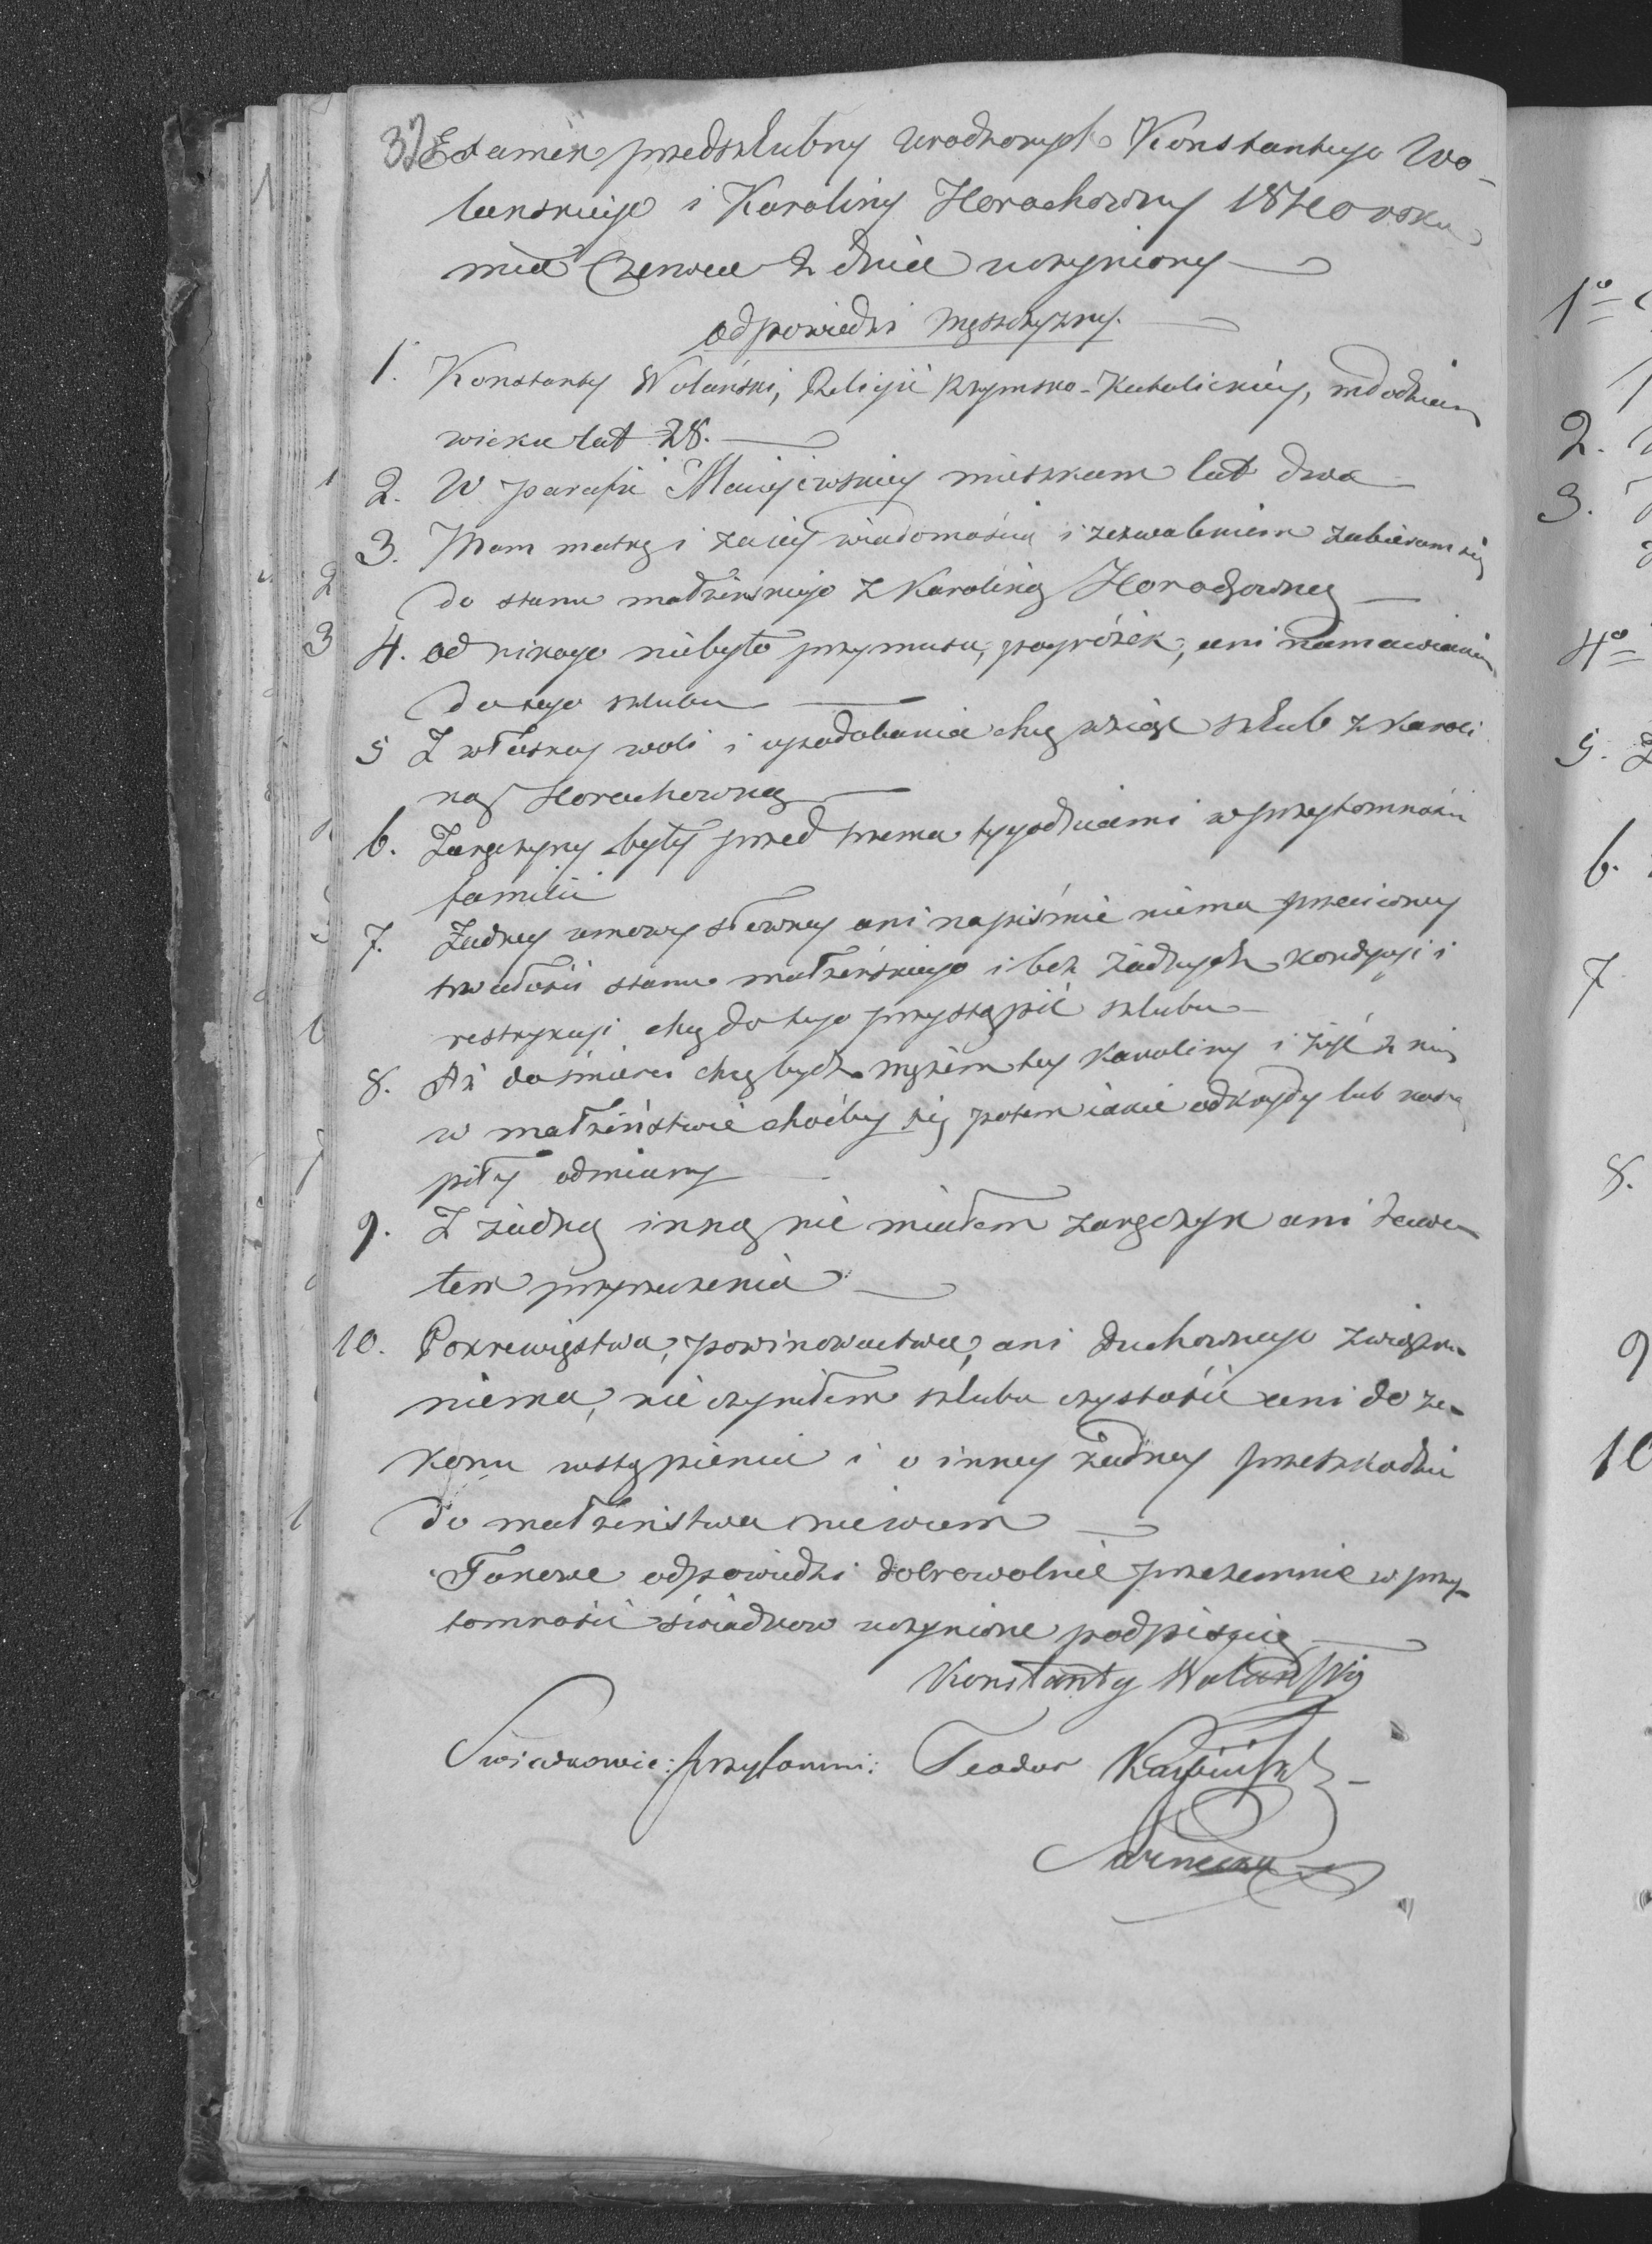 32 Examen przedszlubny urodzonych Konstantego Wo-
lanskiego i Karoliny Horochowny 1840 roku
mca Czerwca 2 dnia uczyniony
odpowiedzi męszczyzny.
1. Konstanty Wolański, Religii Rzymsko-Katolickiéy, młodzian
wieku lat 28.
2. W parafii Maciejowskiey mieszkam lat dwa
3. Mam matkę i za iey wiadomością i zezwaleniem zabieram się
do stanu małżenskiego z Karoliną Horochowną
4. od nikogo niebyło przymusu, pogróżek, ani namawiania
do tego szlubu
5 Z własney woli i upodobania chcę wziąść szlub z Karoli
ną Horochowną
6. Zaręczyny były pred trema tygodniami w przytomności
familii
7. Żadney umowy słowney ani napiśmie niema przeciwney
trwałości stanu małżeńskiego i bez żadnych kondycyi i
restrykcyi chcę do tego przystąpić szlubu
8. Aż do śmierci chcę bydź mężem tey Karoliny i żyć z nią
w małżeństwie choćby się potem iakie odkryły lub nastą
piły odmiany
9. Z żadną inną nie miałem zaręczyn ani dawa
łem przyrzeczenia
10. Pokrewięstwa, powinowactwa, ani duchownego związku
niema, nie czyniłem szlubu czystości ani do za-
konu wstąpienia i o inney żadney przeszkodzie
do małżeństwa niewiem
Takowe odpowiedzi dobrowolnie przezemnie w przy-
tomności świadków uczynione podpisuię
Konstanty Wolański
Swiadkowie: przytomni: Teodor